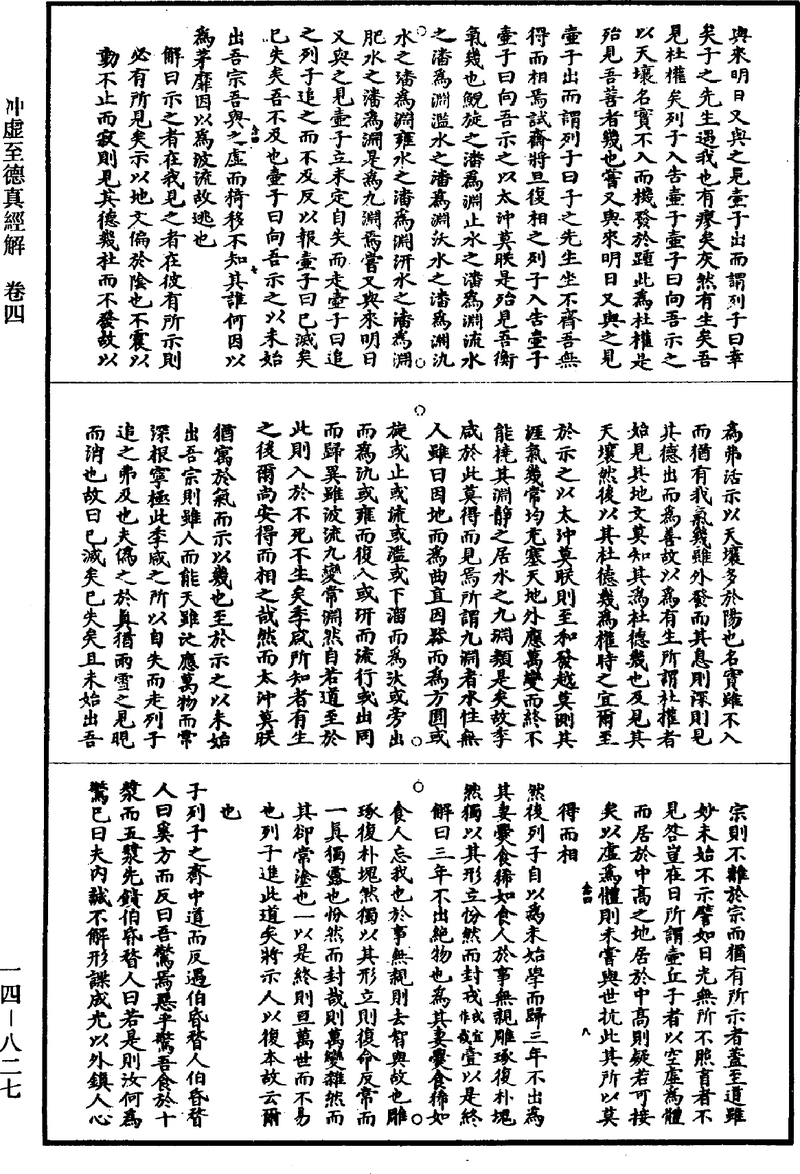 與來明日又與之見壺子出而謂列子曰幸
矣子之先生遇我也有瘳矣灰然有生矣吾
見杜權矣列子入告壺子壺子曰向吾示之
以天壤名實不入而機發於踵此為杜權是
殆見吾善者幾也嘗又與來明日又與之見
壺子出而謂列子曰子之先生坐不齋吾無
得而相焉試齋將且復相之列子入告壺子
壺子曰向吾示之以太沖莫眹是殆見吾衡
氣幾也鯢旋之潘為淵止水之潘為淵流水
之潘為淵濫水之潘為淵沃水之潘為淵氿
水之潘為淵雍水之潘為淵汧水之潘為淵
肥水之潘為淵是為九淵焉嘗又與來明日
又與之見壺子立未定自失而走壺子曰追
之列子追之而不及反以報壺子曰已滅矣
已失矣吾不及也壺子曰向吾示之以未始
出吾宗吾與之虛而猗移不知其誰何因以
為茅靡因以為波流故逃也
解曰示之者在我見之者在彼有所示則
必有所見矣示以地文偏於陰也不震以
動不止而寂則見其德幾杜而不發故以
為弗活示以天壤多於陽也名實雖不入
而猶有我氣幾雖外發而其息則深則見
其德出而為善故以為有生所謂杜權者
始見其地文莫知其為杜德幾也及見其
天壤然後以其杜德幾為權時之宜爾至
於示之以太沖莫眹則至和發越莫測其
涯氣幾常均充塞天地外應萬變而終不
能撓其淵靜之居水之九淵類是矣故季
咸於此莫得而見焉所謂九淵者水性無
人雖曰因地而為曲直因器而為方圓或
旋或止或流或濫或下溜而為沃或旁出
而為氿或雍而復入或汧而流行或出同
而歸異雖波流九變常淵然自若道至於
此則入於不死不生矣季咸所知者有生
之後爾尚安得而相之哉然而太沖莫眹
猶寓於氣而示以幾也至於示之以未始
出吾宗則雖人而能天雖汎應萬物而常
深根寧極此季咸之所以自失而走列子
追之弗及也夫偽之於真猶雨雪之見晛
而消也故曰已滅矣已失矣且未始出吾
宗則不離於宗而猶有所示者蓋至道雖
妙未始不示譬如日光無所不照盲者不
見咎豈在日所謂壺丘子者以空虛為體
而居於中高之地居於中高則疑若可接
矣以虛為體則未嘗與世抗此其所以莫
得而相
然後列子自以為未始學而歸三年不出為
其妻爨食狶如食人於事無親雕琢復朴塊
然獨以其形立㤋然而封戎壹以是終
解曰三年不出絕物也為其妻爨食狶如
食人忘我也於事無親則去智與故也雕
琢復朴塊然獨以其形立則復命反常而
一真獨露也㤋然而封哉則萬變雜然而
其卻常塗也一以是終則亘萬世而不易
也列子進此道矣將示人以復本故云爾
也
子列子之齊中道而反遇伯昏瞀人伯昏瞀
人曰奚方而反曰吾驚焉惡乎驚吾食於十
漿而五漿先饋伯昏瞀人曰若是則汝何為
驚已曰夫內誠不解形諜成光以外鎮人心
沖虛至德真經解 卷四
一四－八二七